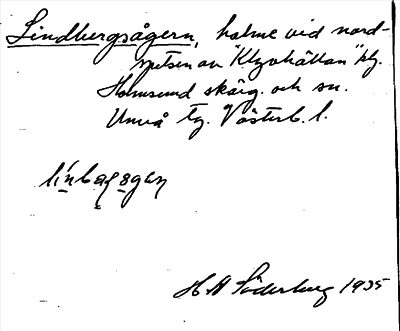 Lindbergsågern, holme vid nord-
spetsen av "Klyvhällan" 
Holmsund skärg. och sn.
Umeå tg. Västerb. l.
H A Söderberg 1935